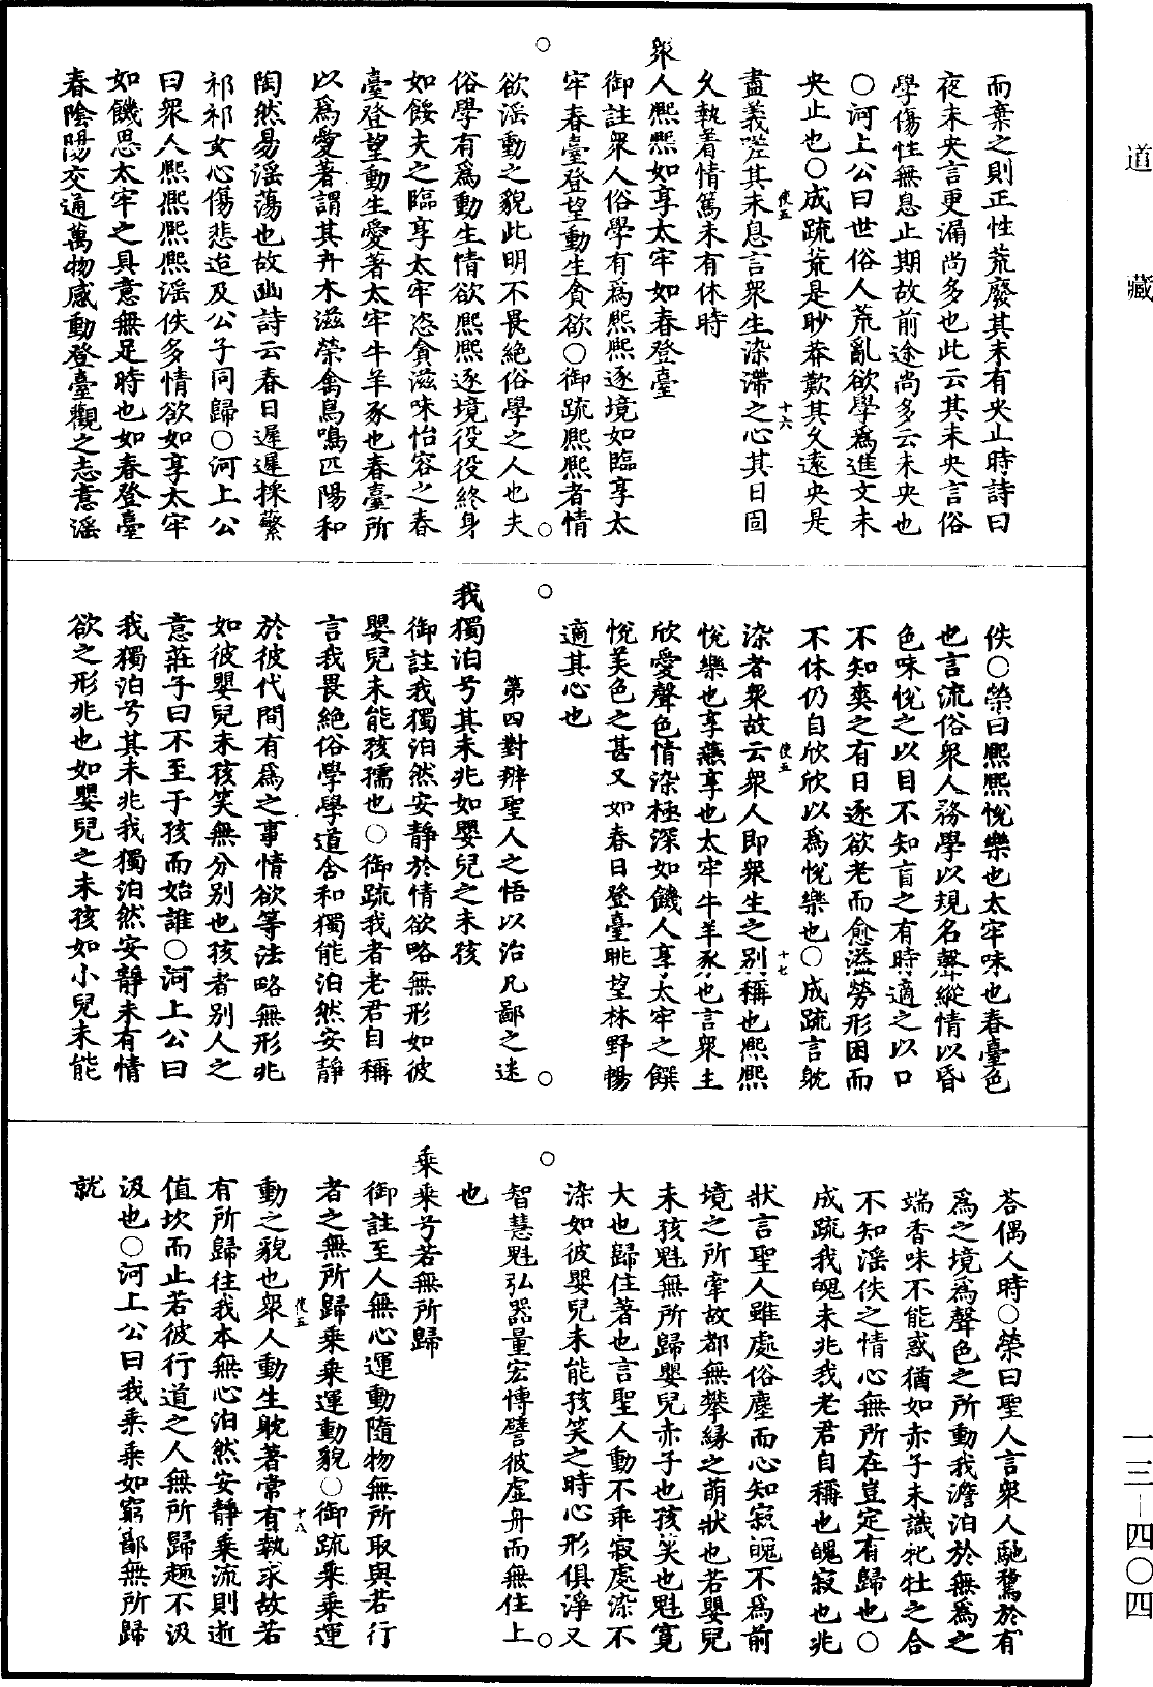 道藏
而棄之則正性荒廢其未有央止時詩曰
夜未央言更漏尚多也此云其未央言俗
學傷性無息止期故前途尚多云未央也
○河上公曰世俗人荒亂欲學爲進文未
央止也○成疏荒是眇莽歎其久遠央是
使五　十六
盡義嗟其未息言衆生染滯之心其日固
久執着情篤未有休時
衆人熙熙如享太牢如春登臺
御註衆人俗學有爲熙熙逐境如臨享太
牢春臺登望動生貪欲○御疏熙熙者情
欲滛動之貌此明不畏絶俗學之人也夫
俗學有爲動生情欲熙熙逐境役役終身
如餒夫之臨享太牢恣貪滋味怡容之春
臺登望動生愛著太牢牛羊豕也春臺所
以爲愛著謂其卉木滋榮禽鳥鳴匹陽和
陶然易滛蕩也故豳詩云春日遲遲採蘩
祁祁女心傷悲迨及公子同歸○河上公
曰衆人熙熙熙熙滛佚多情欲如享太牢
如饑思太牢之具意無足時也如春登臺
春陰陽交通萬物感動登臺觀之志意滛
佚○榮曰熙熙悅樂也太牢味也春臺色
也言流俗衆人務學以規名聲縱情以昏
色味悅之以目不知盲之有時適之以口
不知爽之有日逐欲老而愈溢勞形困而
不休仍自欣欣以爲悅樂也○成疏言躭
使五　十七
染者衆故云衆人即衆生之別稱也熙熙
悅樂也享燕享也太牢牛羊豕也言衆生
欣愛聲色情染極深如饑人享太牢之饌
悅美色之甚又如春日登臺眺望林野暢
適其心也
第四對辨聖人之悟以治凡鄙之迷
我獨泊兮其未兆如嬰兒之未孩
御註我獨泊然安靜於情欲略無形如彼
嬰兒未能孩孺也○御疏我者老君自稱
言我畏絶俗學學道含和獨能泊然安靜
於彼代間有爲之事情欲等法略無形兆
如彼嬰兒未孩笑無分別也孩者別人之
意莊子曰不至于孩而始誰○河上公曰
我獨泊兮其未兆我獨泊然安靜未有情
欲之形兆也如嬰兒之未孩如小兒未能
荅偶人時○榮曰聖人言衆人馳騖於有
爲之境爲聲色之所動我澹泊於無爲之
端香味不能惑猶如赤子未識牝牡之合
不知滛佚之情心無所在豈定有歸也○
成疏我魄未兆我老君自稱也魄寂也兆
狀言聖人雖處俗塵而心知寂魄不爲前
境之所牽故都無攀緣之萌狀也若嬰兒
未孩魁無所歸嬰兒赤子也孩笑也魁寬
大也歸住著也言聖人動不乖寂處染不
染如彼嬰兒未能孩笑之時心形俱淨又
智慧魁弘器量宏博譬彼虛舟而無住上
也
乘乘兮若無所歸
御註至人無心運動隨物無所取與若行
者之無所歸乘乘運動貌○御疏乘乘運
使五　十八
動之貌也衆人動生躭著常有執求故若
有所歸往我本無心泊然安靜乘流則逝
值坎而止若彼行道之人無所歸趣不汲
汲也○河上公曰我乘乘如窮鄙無所歸
就
一三-四〇四